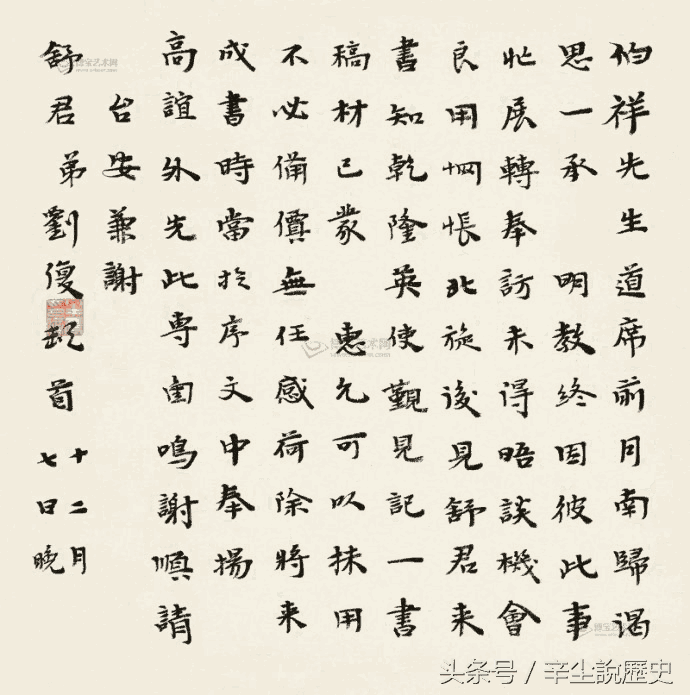 伯祥先生道席前月南歸渴
思一承 明教終因彼此事
忙展轉奉訪未得晤談機會
良用惘悵北旋後見舒君来
書知乾隆英使覲見記一書
稿材已蒙 惠允可以採用
不必備價無任感荷除將来
成書時當於序文中奉揚
高誼外先此專函鳴謝順請
台安兼謝
舒君 弟劉復頓首
十二月
七日晚
博宝艺术网
头条号 / 辛尘說歷史